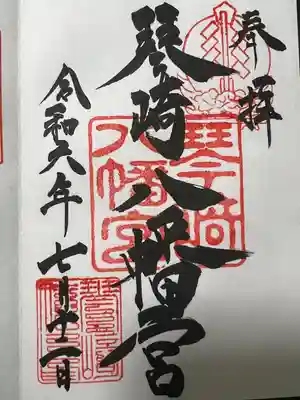 奉拝
琴崎八幡宮
令和六年七月十二日
琴崎八幡宮